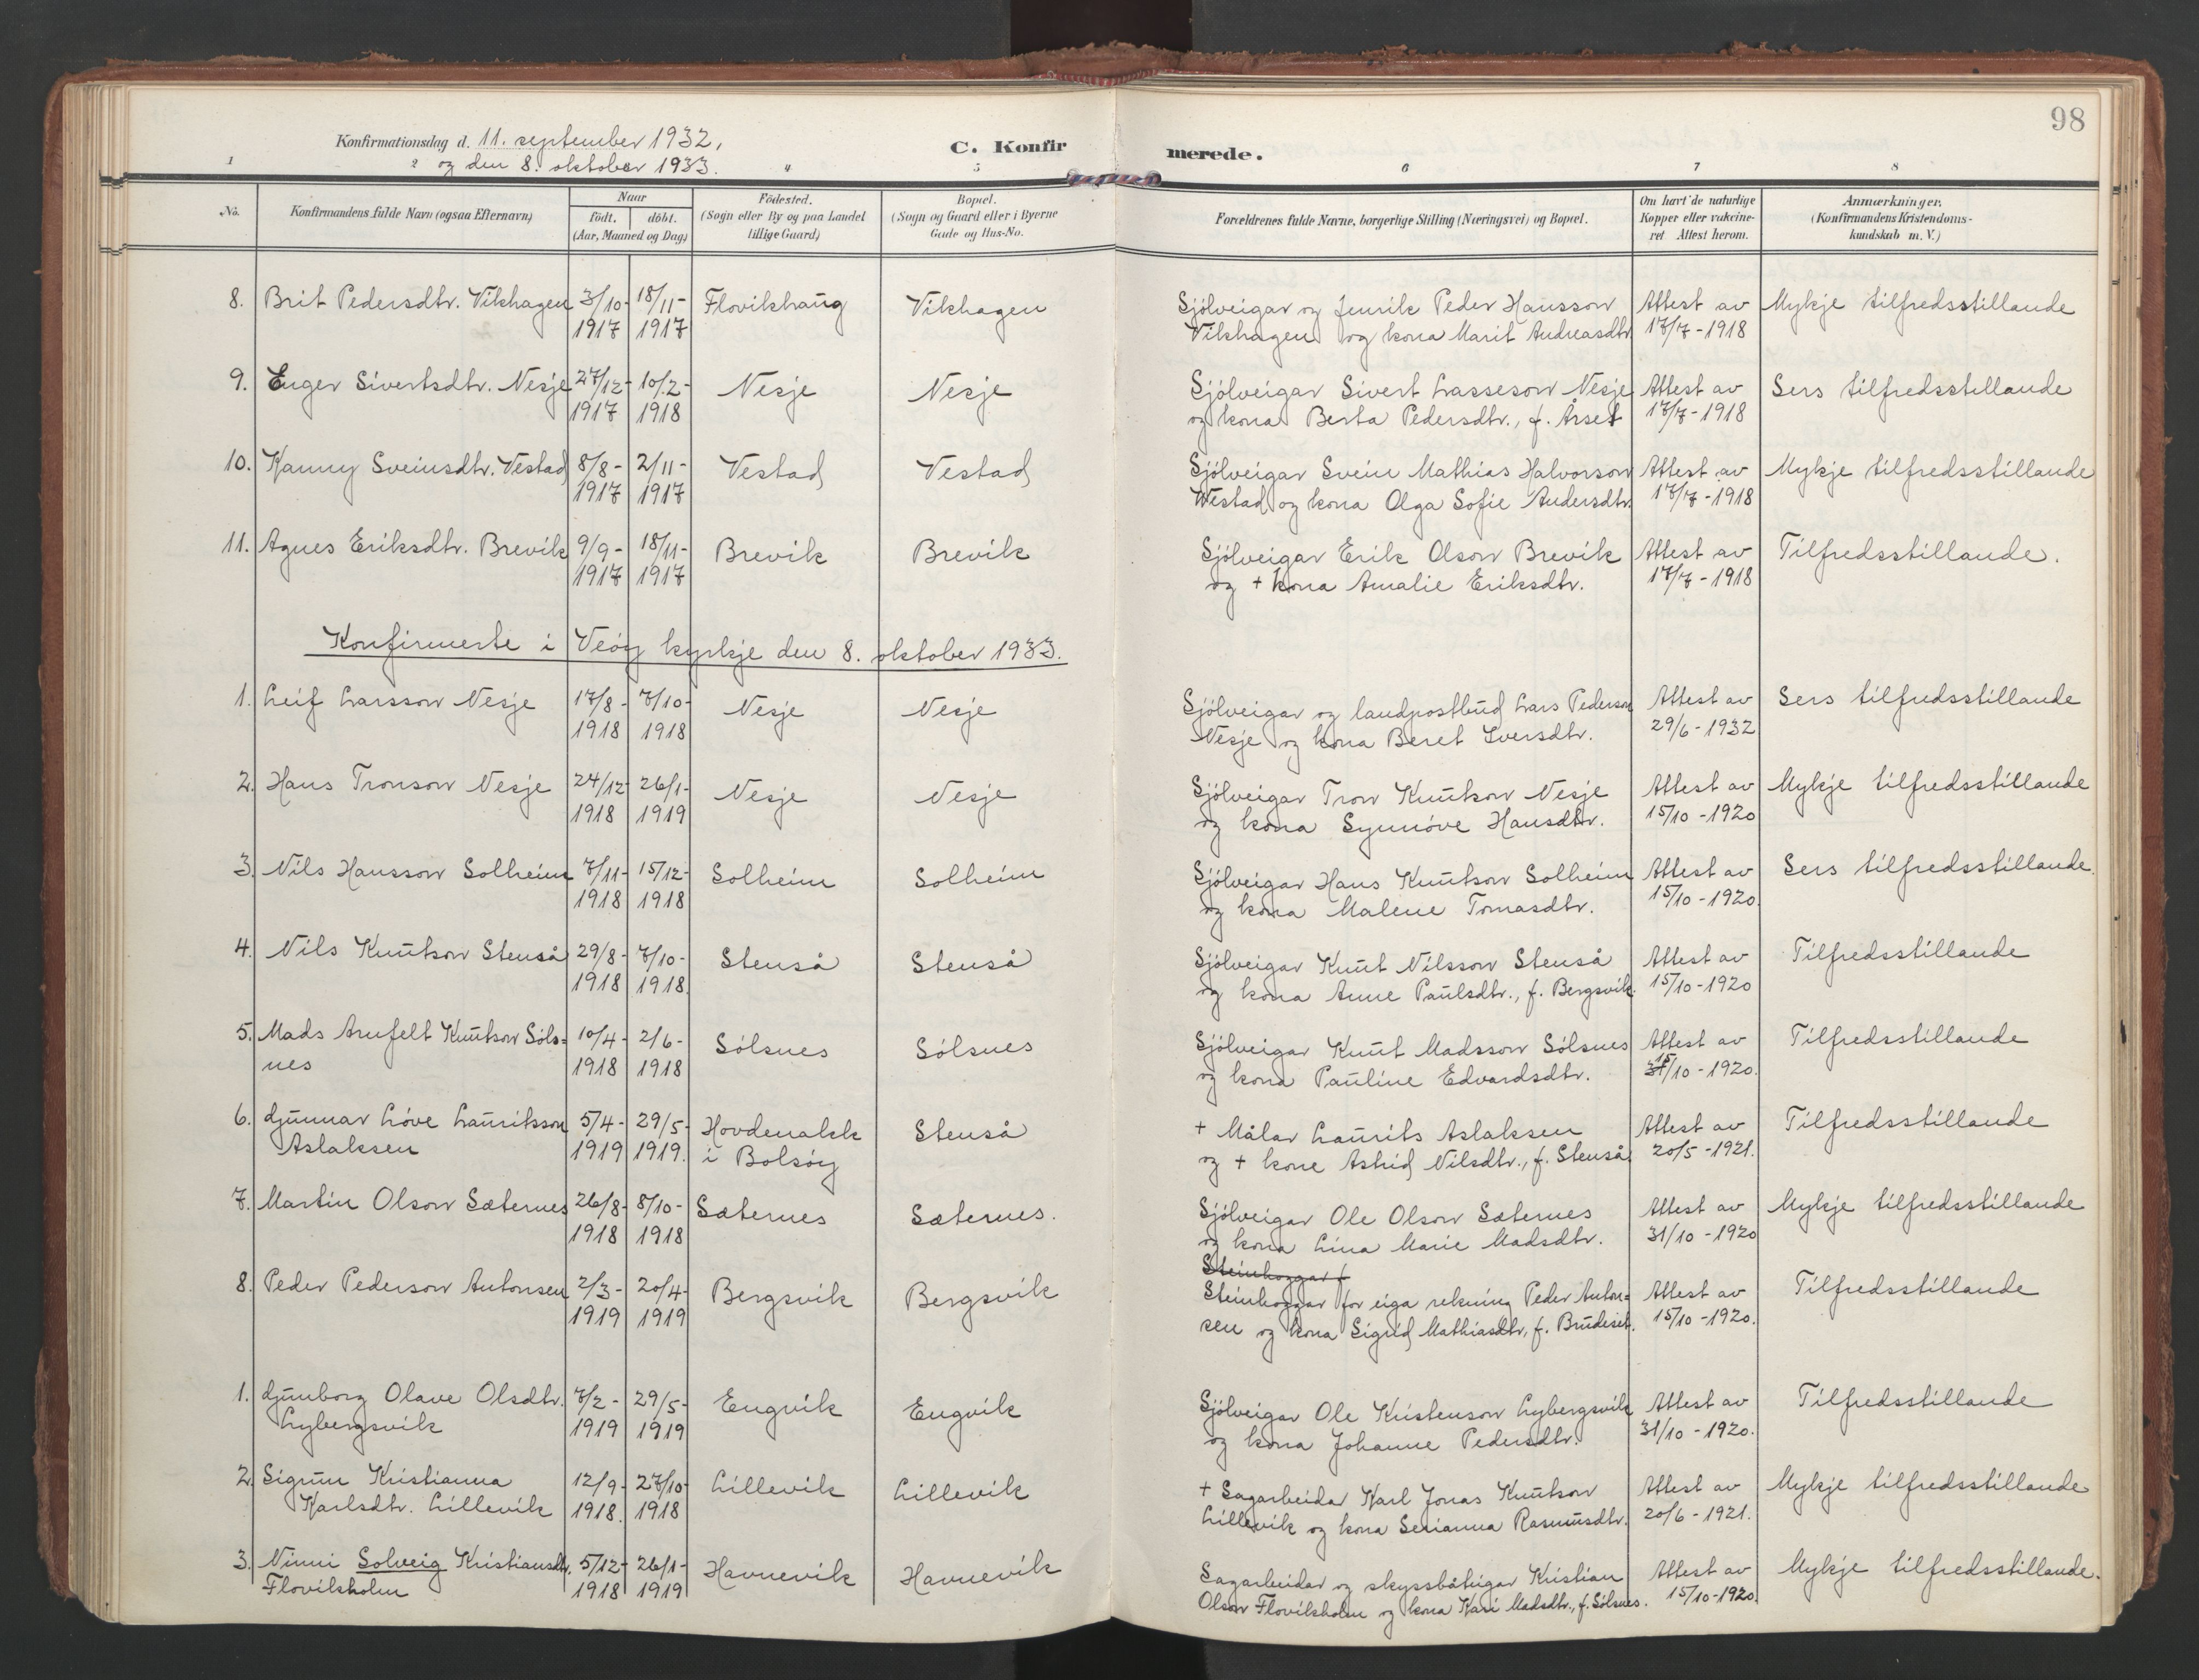 98
Konfirmationsdag d. 11. september 1932,
og den 8. oktober 1933.
C. Konfirmerede.
1 2 4 5 6 7 8
No.
Konfirmandens fulde Navn (ogsaa Efternavn)
Naar
födt. döbt.
(Aar, Maaned og Dag)
Födested.
(Sogn eller By og paa Landet
tillige Gaard)
Bopæl.
(Sogn og Gaard eller i Byerne
Gade og Hus-No.
Forældrenes fulde Navne, borgerlige Stilling (Næringsvei) og Bopæl.
Om havt de naturlige
Kopper eller vakcine-
ret Attest herom.
Anmærkninger.
(Konfirmandens Kristendoms-
kundskab m. V.)
8. Brit Pedersdtr. Vikhagen 3/10- 18/11- Flovikhaug Vikhagen Sjölveigar og Peder Hansson Attest av Mykje tilfredsstillande
1917 1917 Vikhagen og kona Marit Andreasdtr. 17/7-1918
9. Enger Sivertsdtr. Nesje 27/12- 10/2- Nesje Nesje Sjölveigar Sivert Lasseson Nesje Attest av Sers tilfredsstillande
1917 1918 og kona Berta Pedersdtr., f. Årset 17/7-1918
10. Kanny Sveinsdtr. Vestad 8/8- 2/11- Vestad Vestad Sjölveigar Svein Mathias Halvorson Attest av Mykje tilfredsstillande
1917 1917 Vestad og kona Olga Sofie Andersdtr. 17/7-1918
11. Agnes Eriksdtr. Brevik 9/9- 18/11- Brevik Brevik Sjölveigar Erik Olson Brevik Attest av Tilfredsstillande.
1917 1917 og + kona Amalie Eriksdtr. 17/7-1918
Konfirmerte i Veöy kyrkje den 8. oktober 1933.
1. Leif Larsson Nesje 17/8- 7/10- Nesje Nesje Sjölveigar og landpostbud Lars Pederson Attest av Sers tilfredsstillande
1918 1918 Nesje og kona Beret Iversdtr. 29/6-1932
2. Hans Tronson Nesje 24/12- 26/1- Nesje Nesje Sjölveigar Tron Knutson Nesje Attest av Mykje tilfredsstillande
1918 1919 og kona Synnöve Hansdtr. 15/10-1920
3. Nils Hansson Solheim 7/11- 15/12- Solheim Solheim Sjölveigar Hans Knutson Solheim Attest av Sers tilfredsstillande.
1918 1918 og kona Malene Tomasdtr. 15/10-1920.
4. Nils Knutson Stenså 29/8- 7/10- Stenså Stenså Sjölveigar Knut Nilsson Stenså Attest av Tilfredsstillande
1918 1918. og kona Anne Paulsdtr., f. Bergsvik. 15/10-1920
5. Mads Arnfelt Knutson Söls- 10/4- 2/6- Sölsnes Sölsnes Sjölveigar Knut Madsson Sölsnes Attest av Tilfredsstillande
nes 1918 1918 og kona Pauline Edvardsdtr. 15/10-1920.
6. Gunnar Löve Lauritsson 5/4- 29/5- Hovdenakk Stenså + Målar Laurits Aslaksen Attest av Tilfredsstillande
Aslaksen 1919 1919. i Bolsöy og + kone Astrid Nilsdtr., f. Stenså. 20/5-1921.
7. Martin Olson Sæternes 26/8- 8/10- Sæternes Sæternes. Sjölveigar Ole Olson Sæternes Attest av Mykje tilfredsstillande
1918 1918 og kona Lina Marie Madsdtr. 31/10-1920
Steinhoggar f
8. Peder Pederson Antonsen 2/3- 20/4- Bergsvik Bergsvik Steinhoggar for eiga rekning Peder Anton- Attest av Tilfredsstillande
1919 1919 sen og kona Sigrid Mathiasdtr, f. Brudeset. 15/10-1920.
1. Gunborg Olave Olsdtr. 7/2- 29/5- Engvik Engvik Sjölveigar Ole Kristenson Lybergsvik Attest av Tilfredsstillande
Lybergsvik 1919 1919 og kona Johanne Pedersdtr. 31/10-1920.
2. Sigrun Kristianna 12/9- 27/10- Lillevik Lillevik + Sagarbeidar Karl Jonas Knutson Attest av Mykje tilfredsstillande
Karlsdtr. Lillevik 1918. 1918 Lillevik og kona Serianna Rasmusdtr. 20/6-1921.
3. Ninni Solveig Kristiansdtr. 5/12- 26/1- Havnevik Havnevik Sagarbeidar og skyssbåteigar Kristian Attest av Mykje tilfredsstillande.
Flovikholm 1918 1919 Olson Flovikholm og kona Kari Madsdtr., f. Sölsnes. 15/10-1920.